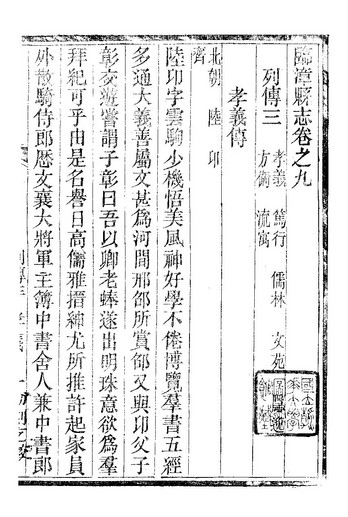 臨漳縣志卷之九
列傳三 孝義 篤行 儒林 文苑
方術 流寓
孝義傳
北朝 陸卬
齊
陸卬字雲駒少機悟美風神好學不倦博覽羣書五經
多通大義善屬文甚爲河間邢邵所賞邵又與卬父子
彰交遊嘗謂子彰曰吾以卿老蚌遂出明珠意欲爲羣
拜紀可乎由是名譽日高儒雅搢紳尤所推許起家員
外散騎侍郎歷文襄大將軍主簿中書舍人兼中書郎